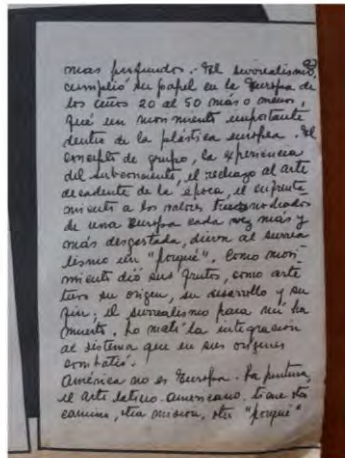 mas profundos. El surrealismo,
cumplió su papel en la Europa de
los años 20 al 50 más o menos,
fué un movimiento importante
dentro de la plástica europea. El
concepto de grupo, la experiencia
del subconsciente, el rechazo al arte
decadente de la época, el enfrenta
miento a los valores
de una Europa cada vez más y
más desgastada, dieron al surrea
lismo un "porqué". Como movi-
miento dió sus frutos, como arte
tuvo su origen, su desarrollo y su
fin; el surrealismo para mí ha
muerto. Lo mató la integración
al sistema que en sus orígenes
combatió.
América no es Europa. La pintura,
el arte latino-americano, tiene otro
camino, otra misión, otro "porqué"